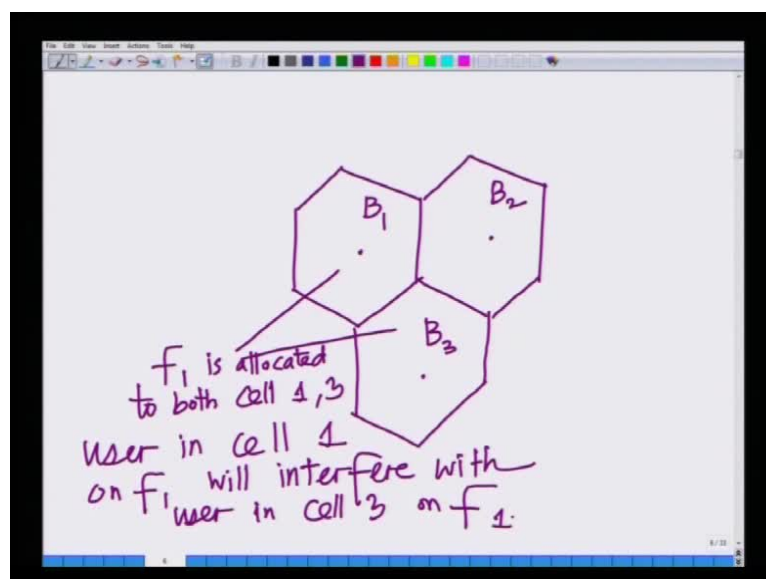 File Edit View Insert Actions Tools Help
B I
B1
B2
B3
f1 is allocated
to both cell 1,3
user in cell 1
on f1 will interfere with
user in cell 3 on f1.
6